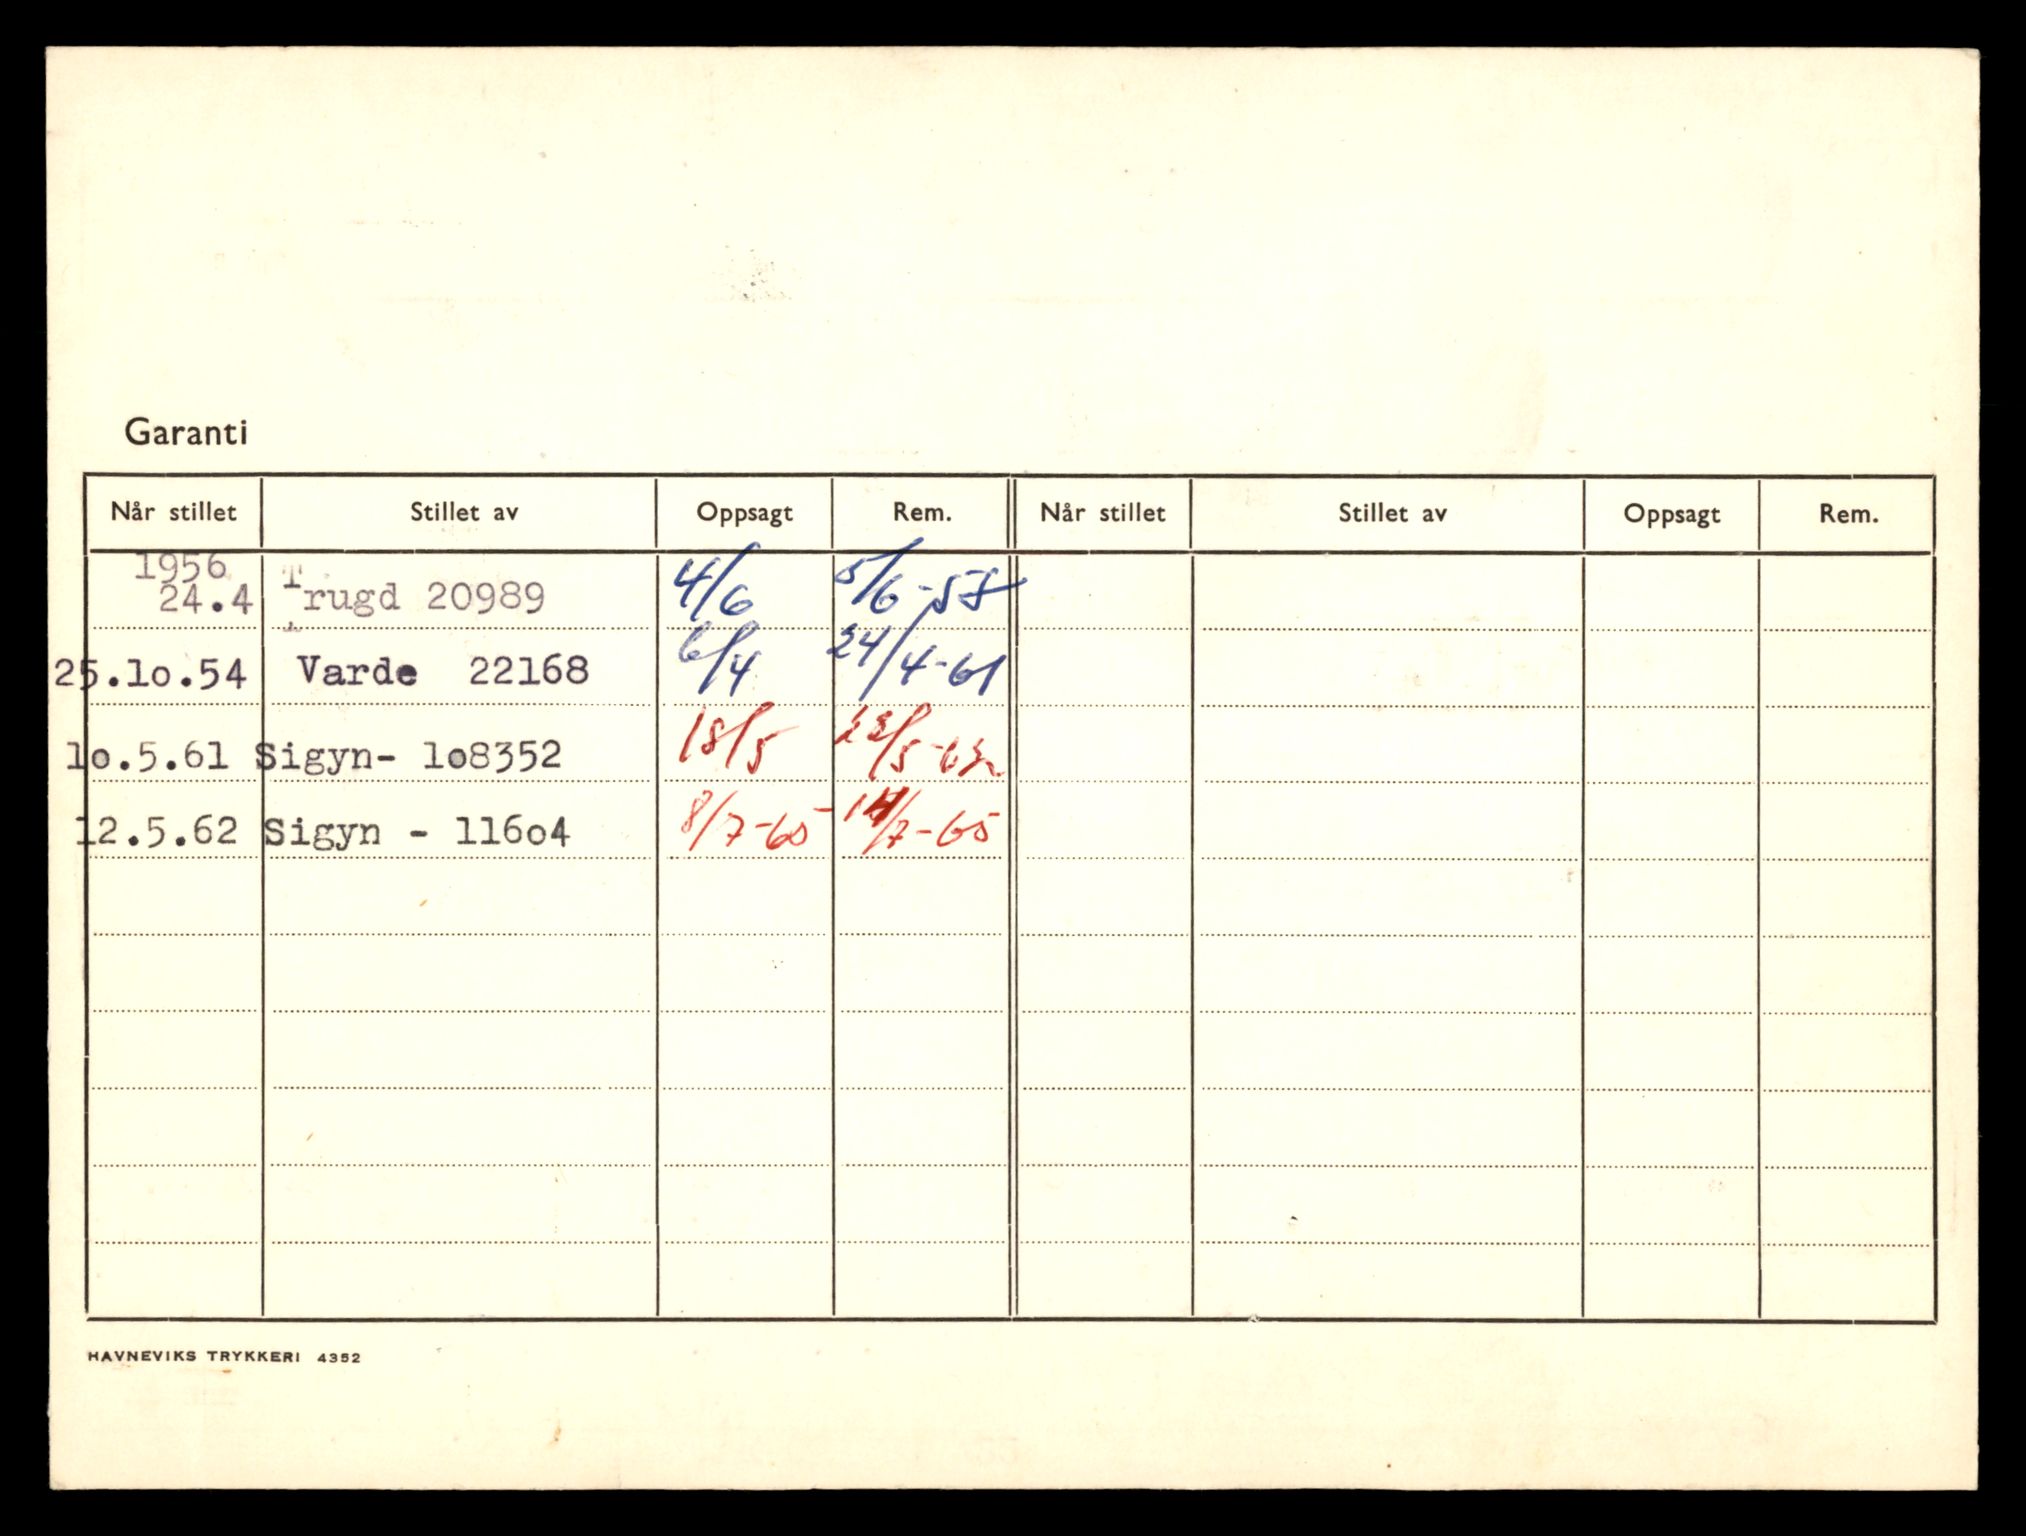 Garanti
Når stillet Stillet av Oppsagt Rem. Når stillet Stillet av Oppsagt Rem.
1956
24.4 Trugd 20989 4/6 5/6-58
25.10.54 Varde 22168 6/4 24/4-61
10.5.61 Sigyn- 108352 18/5 23/5-62
12.5.62 Sigyn - 11604 8/7-65 14/7-65
HAVNEVIKS TRYKKERI 4352